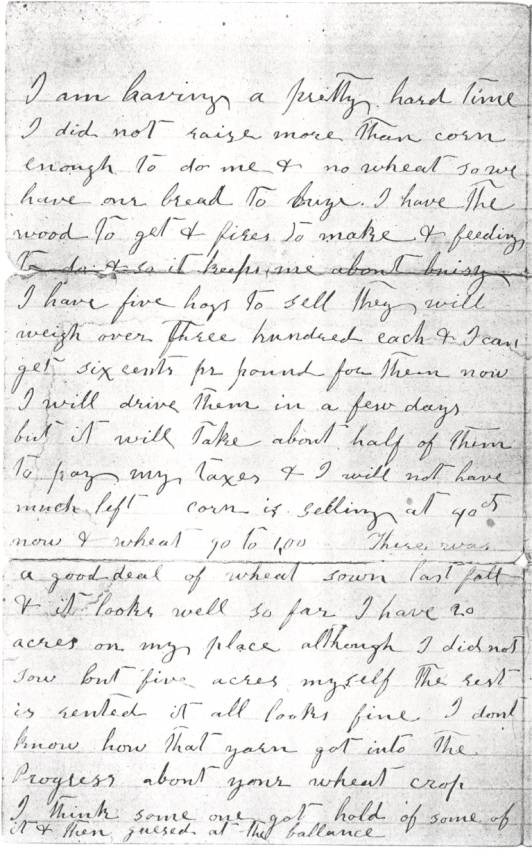 I am having a pretty hard time
I did not raise more than corn
enough to do me & no wheat so we
have our bread to buye. I have the
wood to get & fires to make & feeding
to do & so it keeps me about buisy
I have five hogs to sell they will
weigh over three hundred each & I can
get six cents pr pound for them now
I will drive them in a few days
but it will take about half of them
to pay my taxes & I will not have
much left corn is selling at 40cts
now & wheat 90 to 1,00 There was
a good deal of wheat sown last fall
& it looks well so far I have 20
acres on my place although I did not
sow but five acres myself the rest
is rented it all looks fine I dont
know how that yarn got into the
Progress about your wheat crop
I think some one got hold of some of
it & then guesed at the ballance